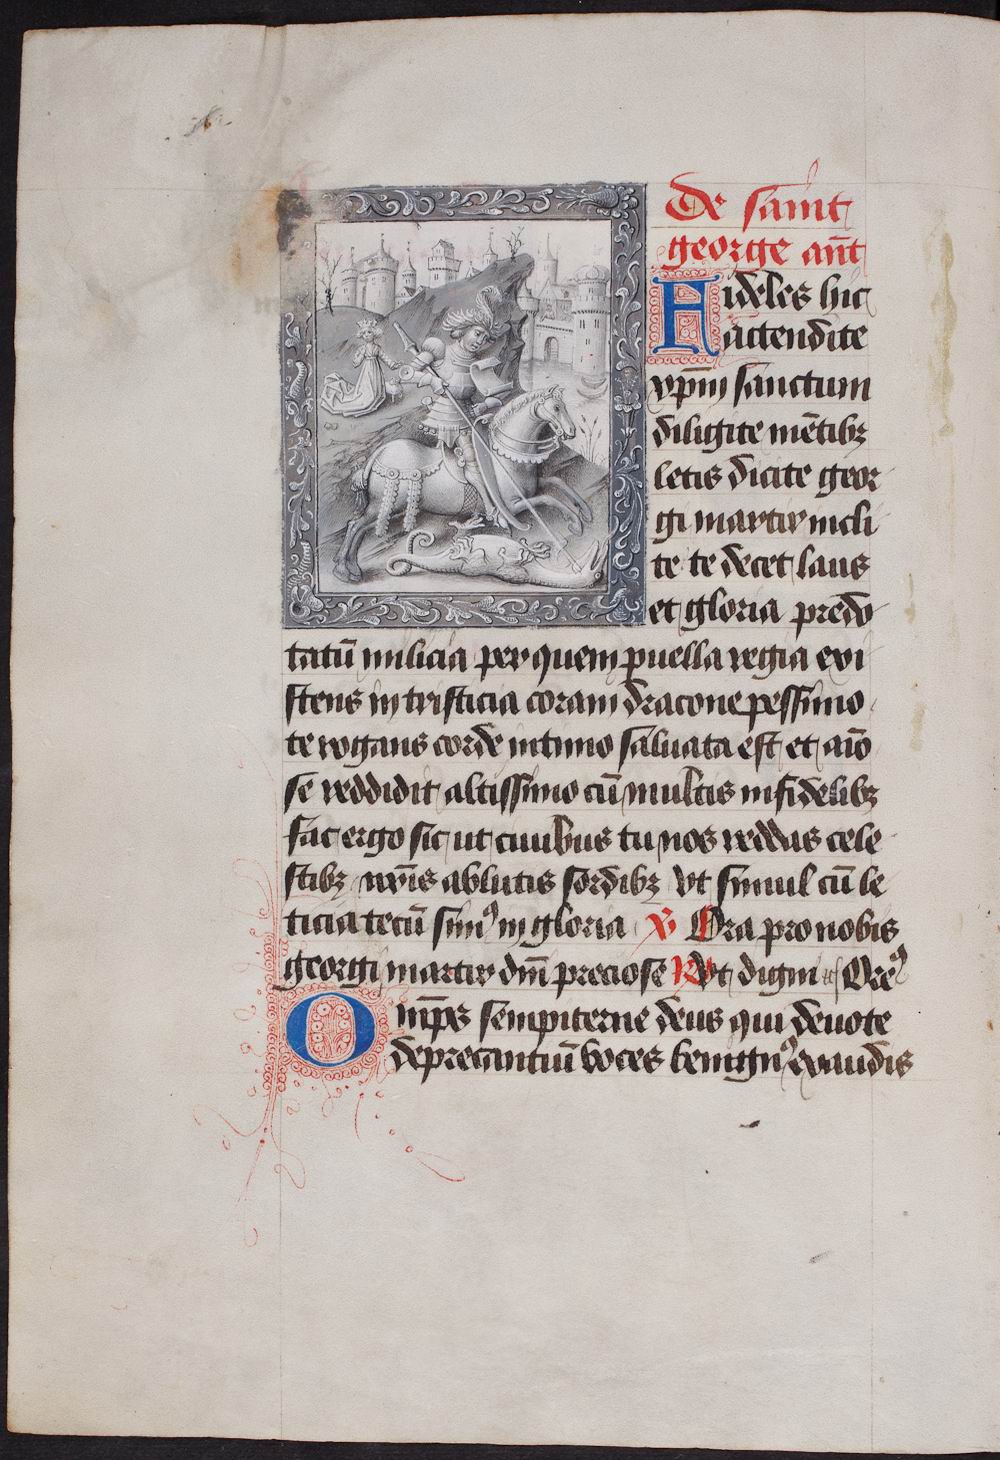 De saint
george ant̄
Fideles hic
attendite
xp̄m sanctum
diligite mētibꝫ
letis dicite geor
gi martir incli
te te decet laus
et gloria predo
tatū milicia per quem puella regia exi
stens in tristicia coram dracone pessimo
te rogans corde intimo saluata est et aīo
se reddidit altissimo cū multis infidelibꝫ
fac ergo sic ut ciuibus tu nos reddas cele
stibꝫ nr̄is ablutis sordibꝫ Vt simul cū le
ticia tecū simꝰ in gloria ℣ Ora pro nobis
georgi martir dn̄i preciose ℟ Vt digni Oreꝰ
Omp̄s sempiterne deus qui deuote
deprecantiū voces benignꝰ exaudis